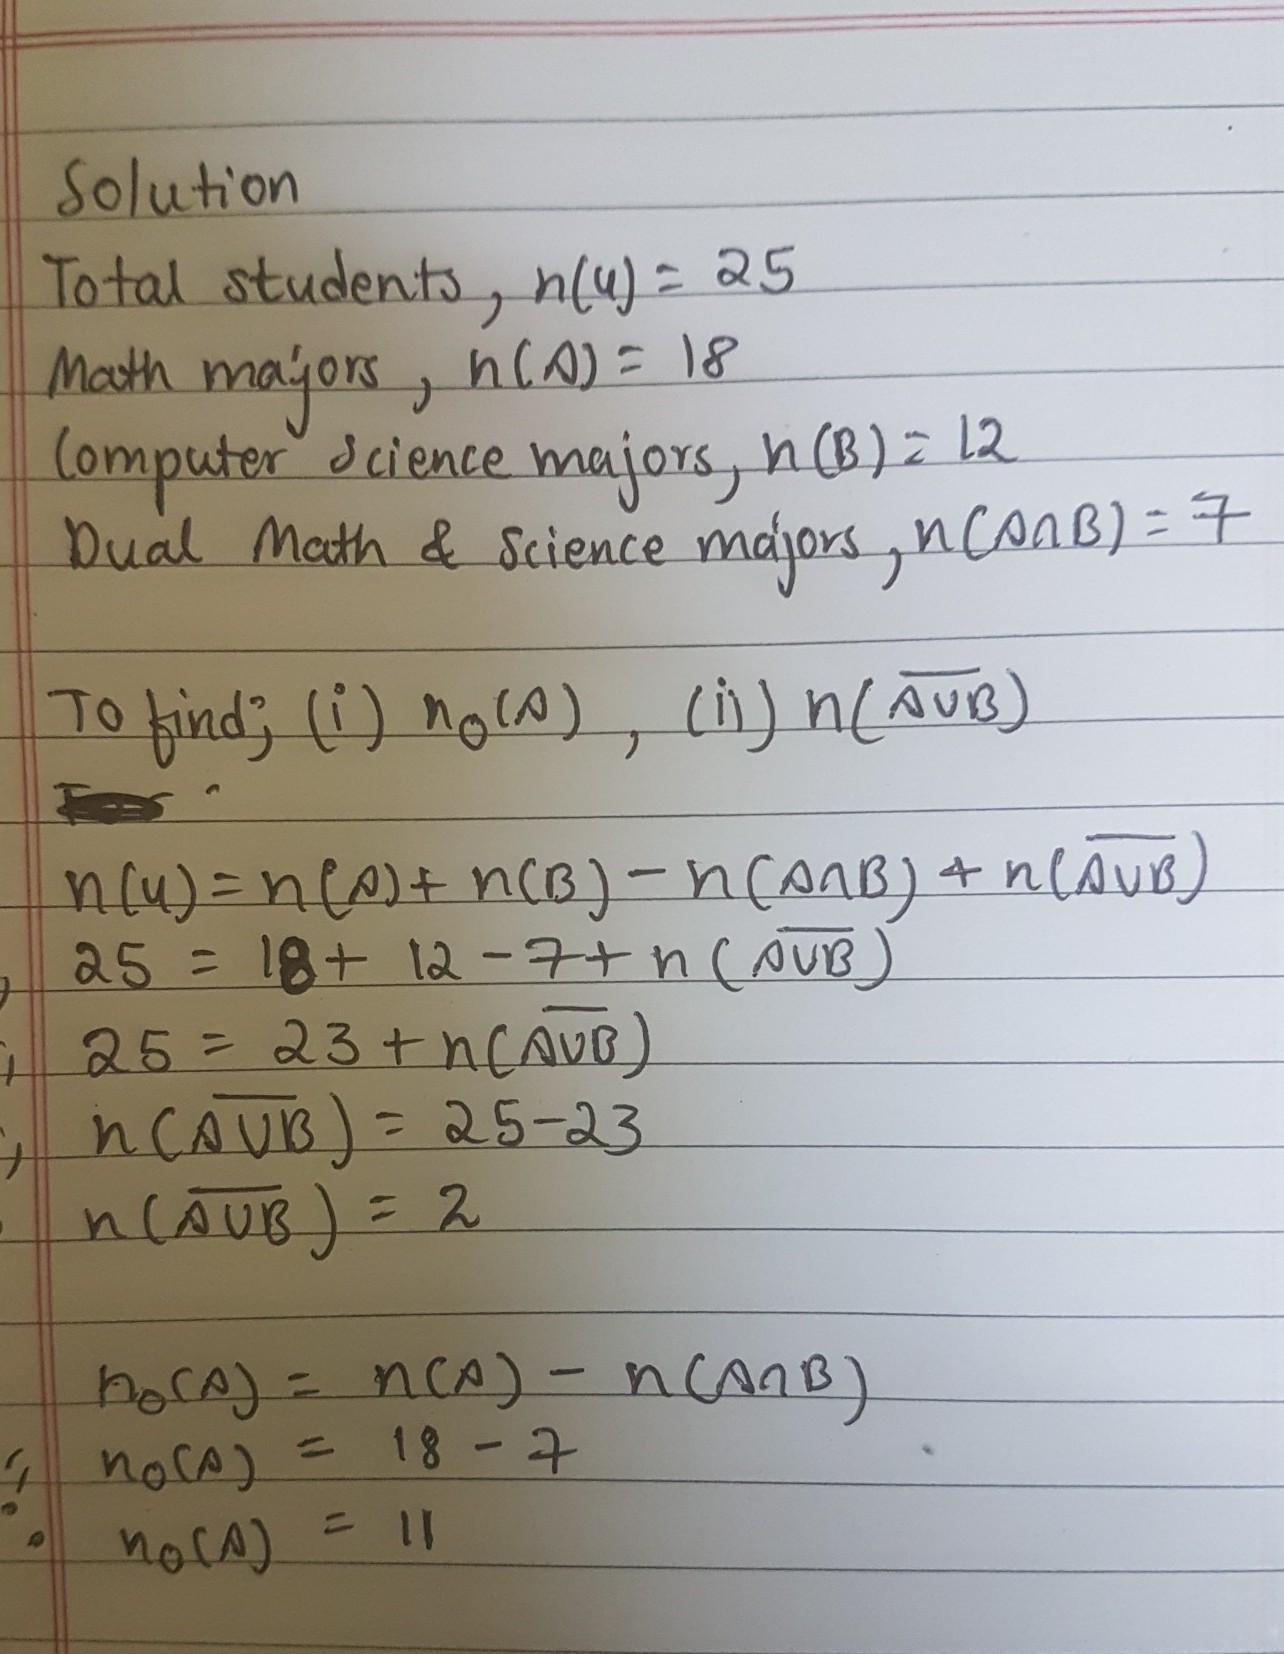 Solution
Total students, n(U) = 25
Math majors, n(A) = 18
Computer Science majors, n(B) = 12
Dual Math & Science majors, n(A∩B) = 7
To find; (i) n₀(A), (ii) n(A̅∪̅B̅)
n(U) = n(A) + n(B) - n(A∩B) + n(A̅∪̅B̅)
, 25 = 18 + 12 - 7 + n(A̅∪̅B̅)
, 25 = 23 + n(A̅∪̅B̅)
, n(A̅∪̅B̅) = 25-23
n(A̅∪̅B̅) = 2
n₀(A) = n(A) - n(A∩B)
n₀(A) = 18 - 7
∴ n₀(A) = 11